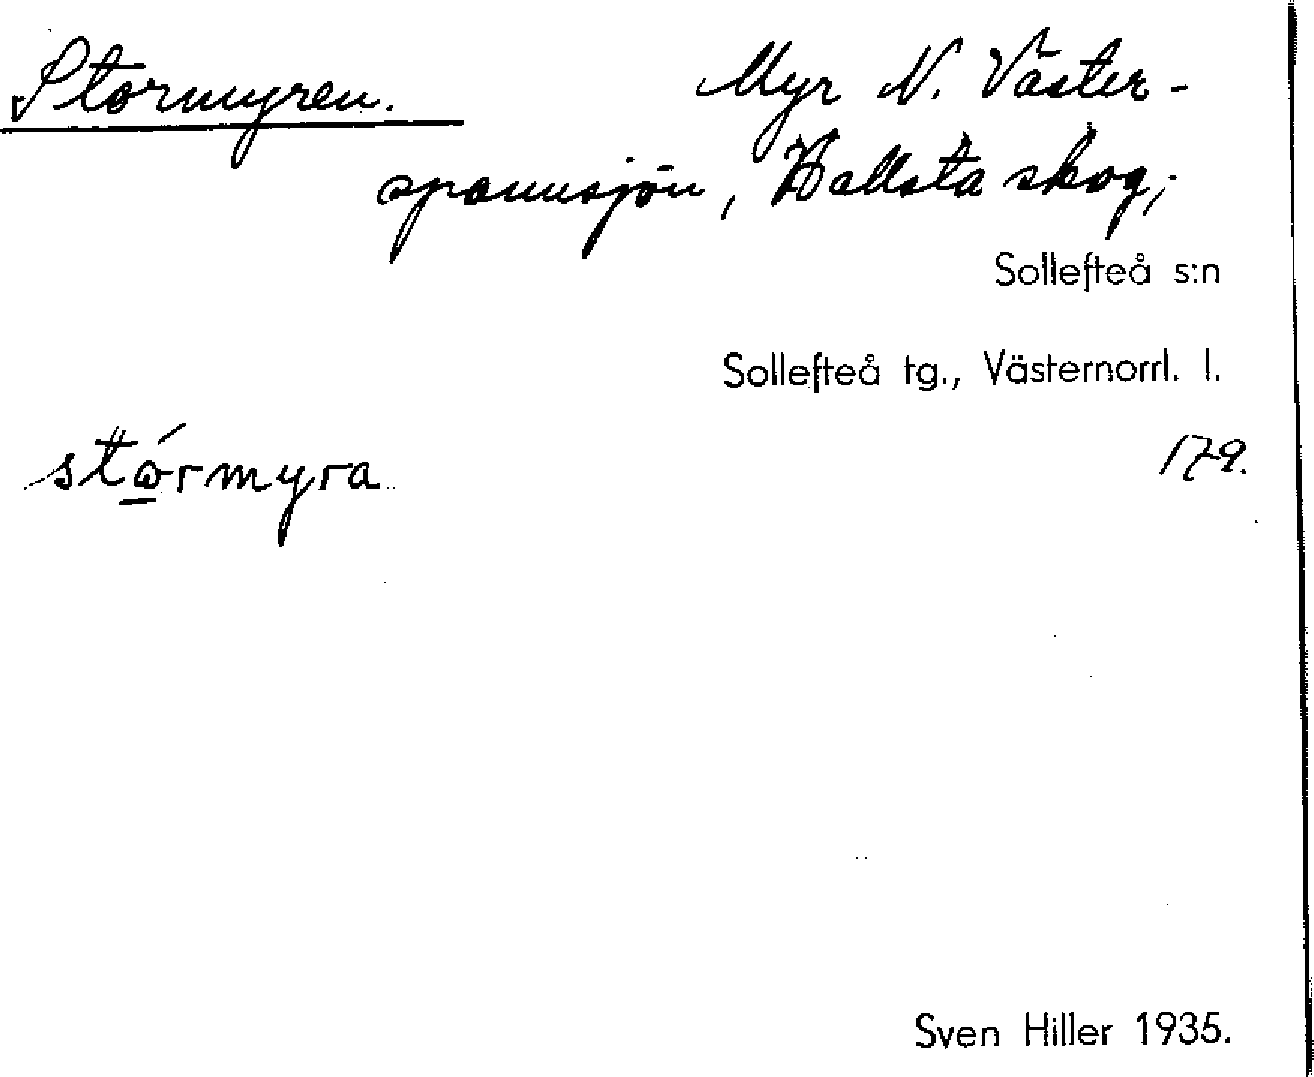 Stormyren. Myr N. Väster-
spannsjön, Hallsta skog;
Sollefteå s:n
Sollefteå tg., Västernorrl. l.
179.
stώ̲rmyra
Sven Hiller 1935.